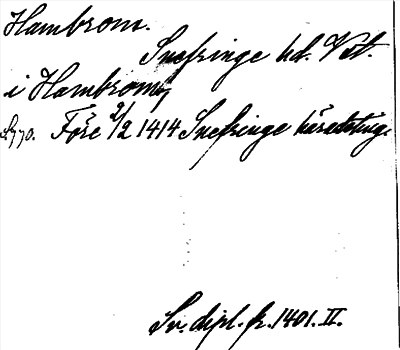 Hambrom.
Snefringe hd. Vstm.
i Hambromy
S. 770. Före 2/2 1414 Snefringe häradsting.
Sv. dipl. fr. 1401. II.